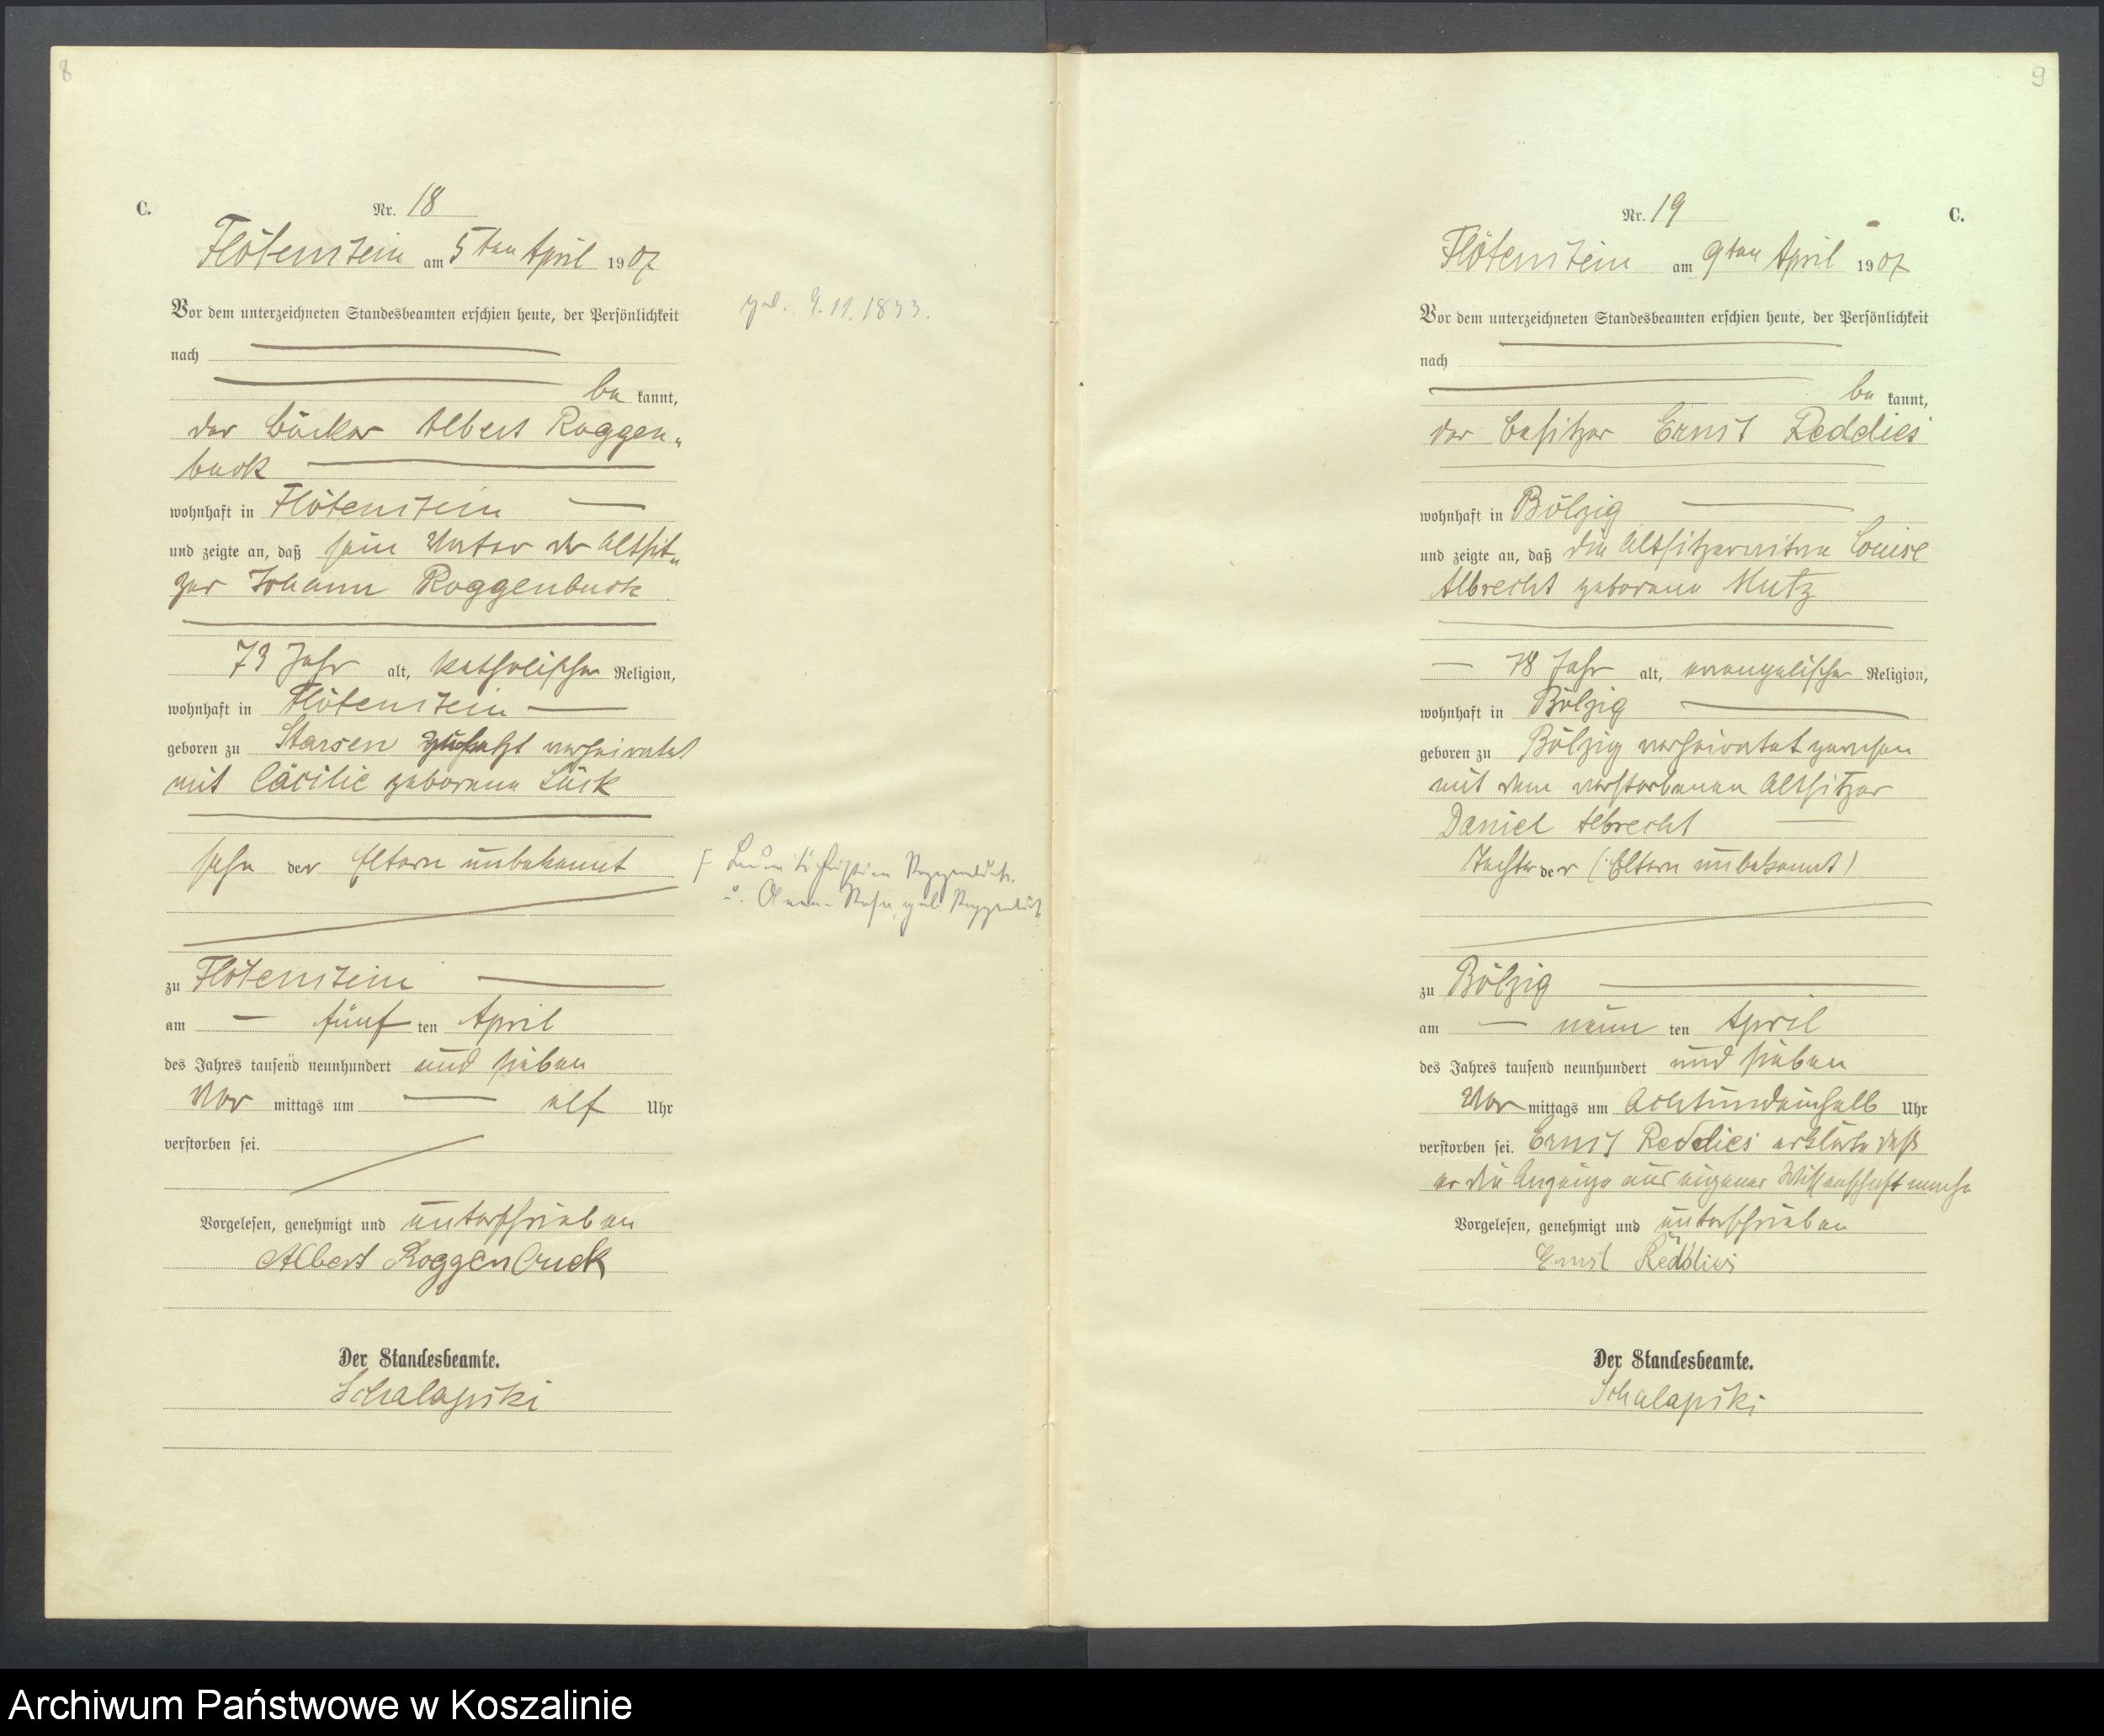 8
C.
Nr. 18
Flötenstein am 5ten April 1907
Vor dem unterzeichneten Standesbeamten erschien heute, der Persönlichkeit
nach
be kannt,
der Bäcker Albert Roggen„
buck
wohnhaft in Flötenstein
und zeigte an, daß sein Vater der Altsit„
zer Johann Roggenbuck
73 Jahr alt, katholischer Religion,
wohnhaft in Flötenstein
geboren zu Starsen zuletzt verheiratet
mit Cäcilie geborene Lück
Sohn der Eltern unbekannt
zu Flötenstein
am fünf ten April
des Jahres tausend neunhundert und sieben
Vor mittags um elf Uhr
verstorben sei.
Vorgelesen, genehmigt und unterschrieben
Albert Roggenbuck
Der Standesbeamte.
Schalapski
geb. 9.11.1833.
Christian Roggenbuck
u. Anna Rosa geb. Roggenbuck
9
Nr. 19
C.
Flötenstein am 9ten April 1907
Vor dem unterzeichneten Standesbeamten erschien heute, der Persönlichkeit
nach
be kannt,
der Besitzer Ernst Reddies
wohnhaft in Bölzig
und zeigte an, daß die Altsitzerwitwe Louise
Albrecht geborene Mutz
78 Jahr alt, evangelischer Religion,
wohnhaft in Bölzig
geboren zu Bölzig verheiratet gewesen
mit dem verstorbenen Altsitzer
Daniel Albrecht
Tochter der (Eltern unbekannt)
zu Bölzig
am neun ten April
des Jahres tausend neunhundert und sieben
Vor mittags um Achtundeinhalb Uhr
verstorben sei. Ernst Reddies erklärte daß
er die Anzeige aus eigener Wissenschaft mache
Vorgelesen, genehmigt und unterschrieben
Ernst Reddies
Der Standesbeamte.
Schalapski
Archiwum Państwowe w Koszalinie